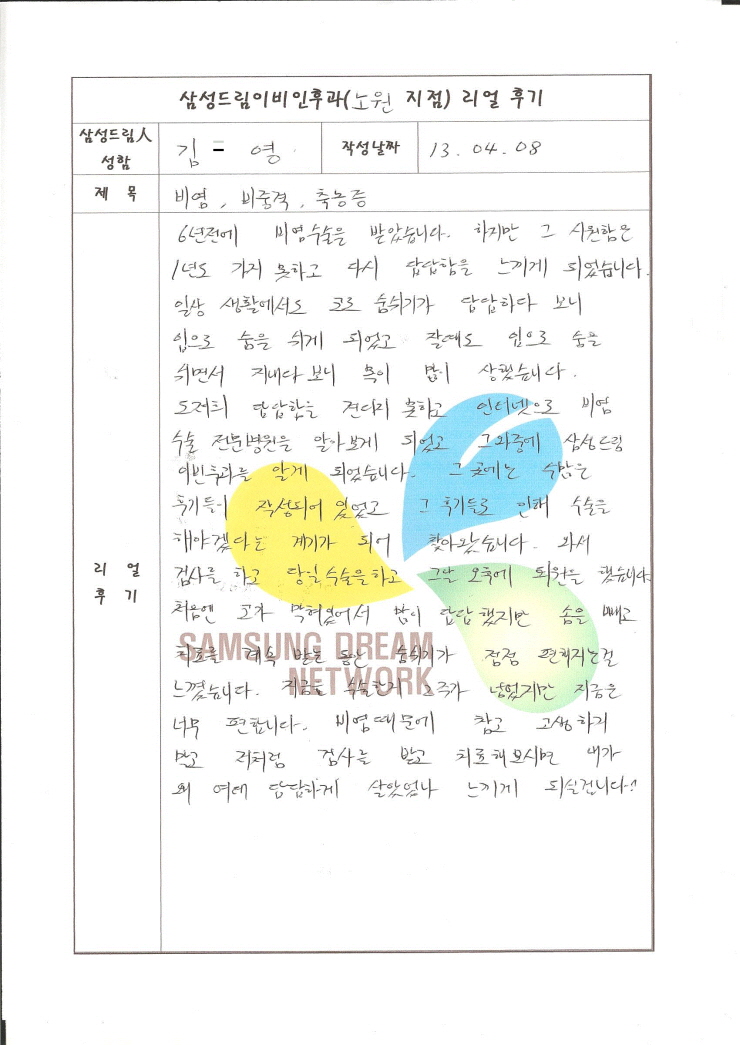 삼성드림이비인후과(노원 지점) 리얼 후기
삼성드림人 성함
김 = 영
작성날짜
13. 04. 08
제 목
비염, 비중격, 축농증
리 얼 후 기
6년전에 비염수술을 받았습니다. 하지만 그 시원함은
1년도 가지 못하고 다시 답답함을 느끼게 되었습니다.
일상 생활에서도 코로 숨쉬기가 답답하다 보니
입으로 숨을 쉬게 되었고 잘때도 입으로 숨을
쉬면서 지내다 보니 목이 많이 상했습니다.
도저히 답답함을 견디지 못하고 인터넷으로 비염
수술 전문병원을 알아보게 되었고 그와중에 삼성드림
이빈후과를 알게 되었습니다. 그 곳에는 수많은
후기들이 작성되어 있었고 그 후기들로 인해 수술을
해야겠다는 계기가 되어 찾아왔습니다. 와서
검사를 하고 당일수술을하고 그날 오후에 퇴원을 했습니다
처음엔 코가 막혀있어서 많이 답답했지만 솜을 빼고
치료를 계속 받는 동안 숨쉬기가 점점 편해지는걸
느꼈습니다. 지금은 수술한지 2주가 넘었지만 지금은
너무 편합니다. 비염때문에 참고 고생하지
말고 저처럼 검사를 받고 치료해보시면 내가
왜 여태 답답하게 살았었나 느끼게 되실겁니다!!
SAMSUNG DREAM
NETWORK